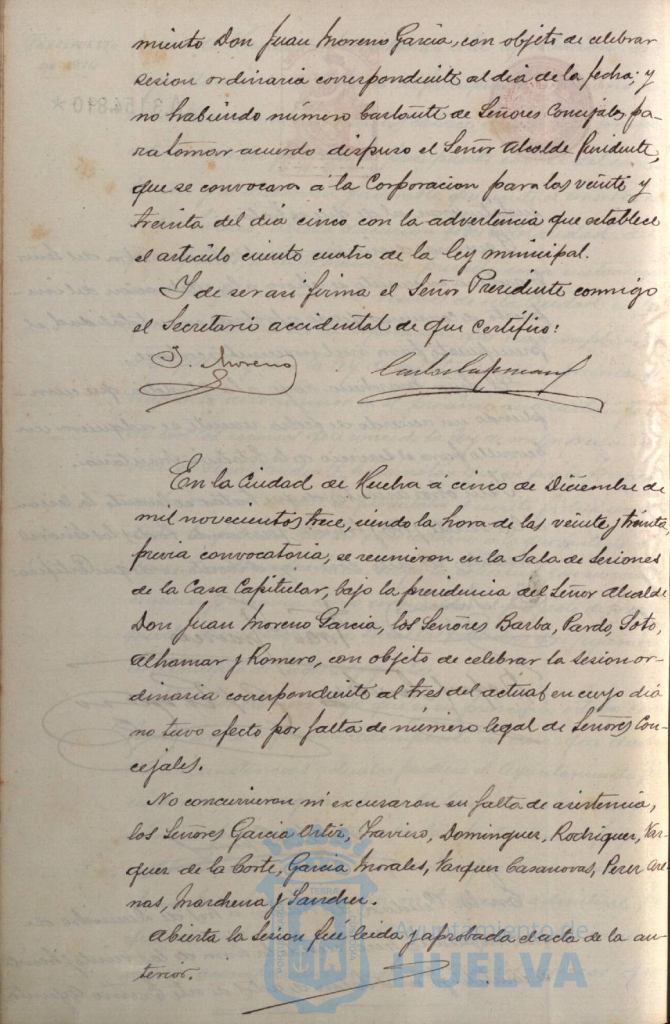 miento Don Juan Moreno García, con objeto de celebrar
sesion ordinaria correspondiente al dia de la fecha; y
no habiendo número bastante de Señores Concejales pa-
ra tomar acuerdo dispuso el Señor Alcalde Presidente,
que se convocara á la Corporacion para las veinte y
treinta del dia cinco con la advertencia que establece
el artículo ciento cuatro de la ley municipal.
Y de ser asi firma el Señor Presidente conmigo
el Secretario accidental de que certifico:
J. Moreno
En la Ciudad de Huelva á cinco de Diciembre de
mil novecientos trece, siendo la hora de las veinte y treinta,
previa convocatoria, se reunieron en la Sala de Sesiones
de la Casa Capitular, bajo la presidencia del Señor Alcalde
Don Juan Moreno García, los Señores Barba, Pardo, Soto,
Alhamar y Romero, con objeto de celebrar la sesion or-
dinaria correspondiente al tres del actual en cuyo dia
no tuvo efecto por falta de número legal de Señores Con-
cejales.
No concurrieron ni excusaron su falta de asistencia,
los Señores García Ortiz, Travieso, Dominguez, Rodriguez, Vaz-
quez de la Corte, García Morales, Vazquez Casanovas, Perez Are-
nas, Marchena y Sanchez.
Abierta la Sesion fué leida y aprobada el acta de la an-
terior.
Ayuntamiento de
HUELVA